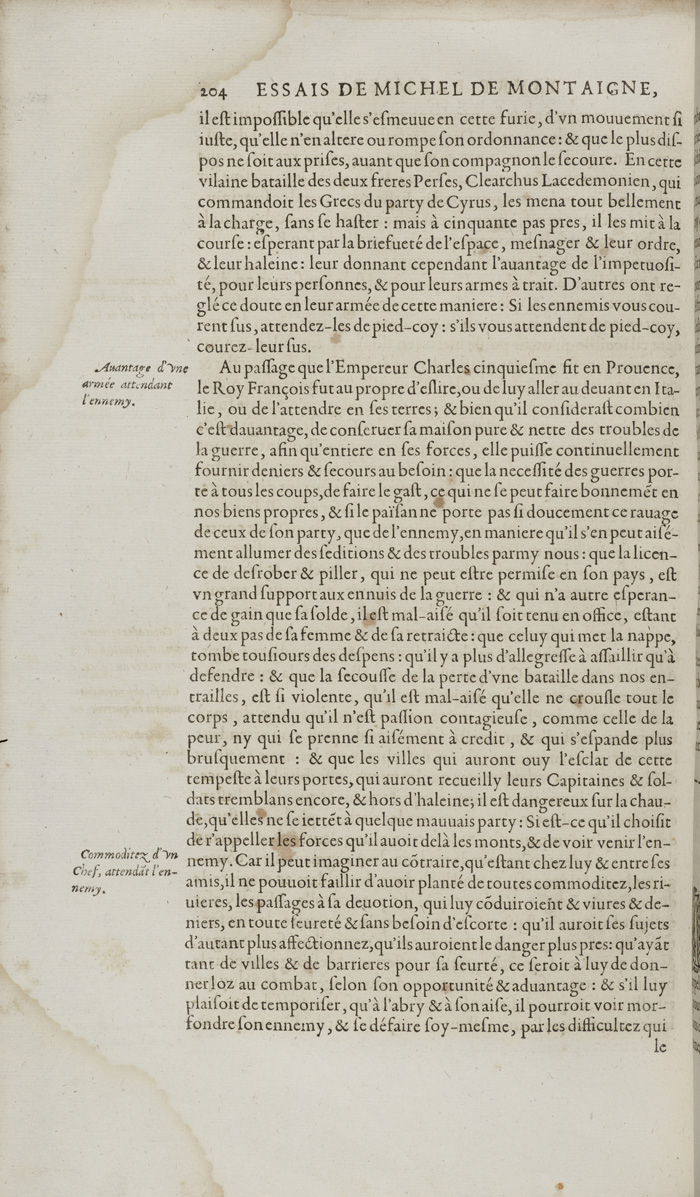 204 ESSAIS DE MICHEL DE MONTAIGNE,
il eſt impoſſible qu'elle s'eſmeuue en cette furie, d'vn mouuement ſi
iuſte, qu'elle n'en altere ou rompe ſon ordonnance: & que le plus diſ-
pos ne ſoit aux priſes, auant que ſon compagnon le ſecoure. En cette
vilaine bataille des deux freres Perſes, Clearchus Lacedemonien, qui
commandoit les Grecs du party de Cyrus, les mena tout bellement
à la charge, ſans ſe haſter : mais à cinquante pas pres, il les mit à la
courſe : eſperant par la briefueté de l'eſpace, meſnager & leur ordre,
& leur haleine: leur donnant cependant l'auantage de l'impetuoſi-
té, pour leurs perſonnes, & pour leurs armes à trait. D'autres ont re-
glé ce doute en leur armée de cette maniere : Si les ennemis vous cou-
rent ſus, attendez-les de pied-coy : s'ils vous attendent de pied-coy,
courez-leur ſus.
Auantage d'vne
armée attendant
l'ennemy.
Au paſſage que l'Empereur Charles cinquieſme fit en Prouence,
le Roy François fut au propre d'eſlire, ou de luy aller au deuant en Ita-
lie, ou de l'attendre en ſes terres; & bien qu'il conſideraſt combien
c'eſt dauantage, de conſeruer ſa maiſon pure & nette des troubles de
la guerre, afin qu'entiere en ſes forces, elle puiſſe continuellement
fournir deniers & ſecours au beſoin : que la neceſſité des guerres por-
te à tous les coups, de faire le gaſt, ce qui ne ſe peut faire bonnemẽt en
nos biens propres, & ſi le païſan ne porte pas ſi doucement ce rauage
de ceux de ſon party, que de l'ennemy, en maniere qu'il s'en peut aiſé-
ment allumer des ſeditions & des troubles parmy nous : que la licen-
ce de deſrober & piller, qui ne peut eſtre permiſe en ſon pays, eſt
vn grand ſupport aux ennuis de la guerre : & qui n'a autre eſperan-
ce de gain que ſa ſolde, il eſt mal-aiſé qu'il ſoit tenu en office, eſtant
à deux pas de ſa femme & de ſa retraicte : que celuy qui met la nappe,
tombe touſiours des deſpens : qu'il y a plus d'allegreſſe à aſſaillir qu'à
defendre : & que la ſecouſſe de la perte d'vne bataille dans nos en-
trailles, eſt ſi violente, qu'il eſt mal-aiſé qu'elle ne crouſle tout le
corps, attendu qu'il n'eſt paſſion contagieuſe, comme celle de la
peur, ny qui ſe prenne ſi aiſément à credit, & qui s'eſpande plus
bruſquement : & que les villes qui auront ouy l'eſclat de cette
tempeſte à leurs portes, qui auront recueilly leurs Capitaines & ſol-
dats tremblans encore, & hors d'haleine; il eſt dangereux ſur la chau-
de, qu'elles ne ſe iettẽt à quelque mauuais party : Si eſt-ce qu'il choiſit
de r'appeller les forces qu'il auoit delà les monts, & de voir venir l'en-
Commoditez d'vn
Chef, attendãt l'en-
nemy.
nemy. Car il peut imaginer au cõtraire, qu'eſtant chez luy & entre ſes
amis, il ne pouuoit faillir d'auoir planté de toutes commoditez, les ri-
uieres, les paſſages à ſa deuotion, qui luy cõduiroient & viures & de-
niers, en toute ſeureté & ſans beſoin d'eſcorte : qu'il auroit ſes ſujets
d'autant plus affectionnez, qu'ils auroient le danger plus pres: qu'ayãt
tant de villes & de barrieres pour ſa ſeurté, ce ſeroit à luy de don-
ner loz au combat, ſelon ſon opportunité & aduantage : & s'il luy
plaiſoit de temporiſer, qu'à l'abry & à ſon aiſe, il pourroit voir mor-
fondre ſon ennemy, & ſe défaire ſoy-meſme, par les difficultez qui
le